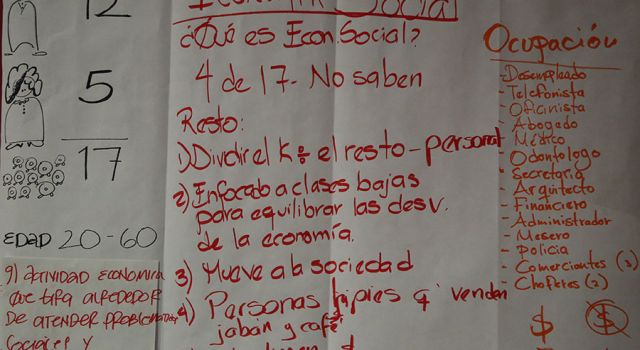 12
5
17
EDAD 20-60
9) ACTIVIDAD ECONOMICA
QUE TIPA ALREDEDOR
DE ATENDER
SOCIALES Y
Social
¿Qué es Econ. Social?
4 de 17- No saben
Resto:
1) Dividir el K el resto - personal
2) Enfocado a clases bajas
para equilibrar las desv.
de la economía.
3) Mueve a la sociedad
4) Personas hipies q' venden
jabón y café
Ocupación
- Desempleado
- Telefonista
- Oficinista
- Abogado
- Médico
- Odontologo
- Secretaria
- Arquitecto
- Financiero
- Administrador
- Mesero
- Policia
- Comerciantes
- Choferes (2)
$ $